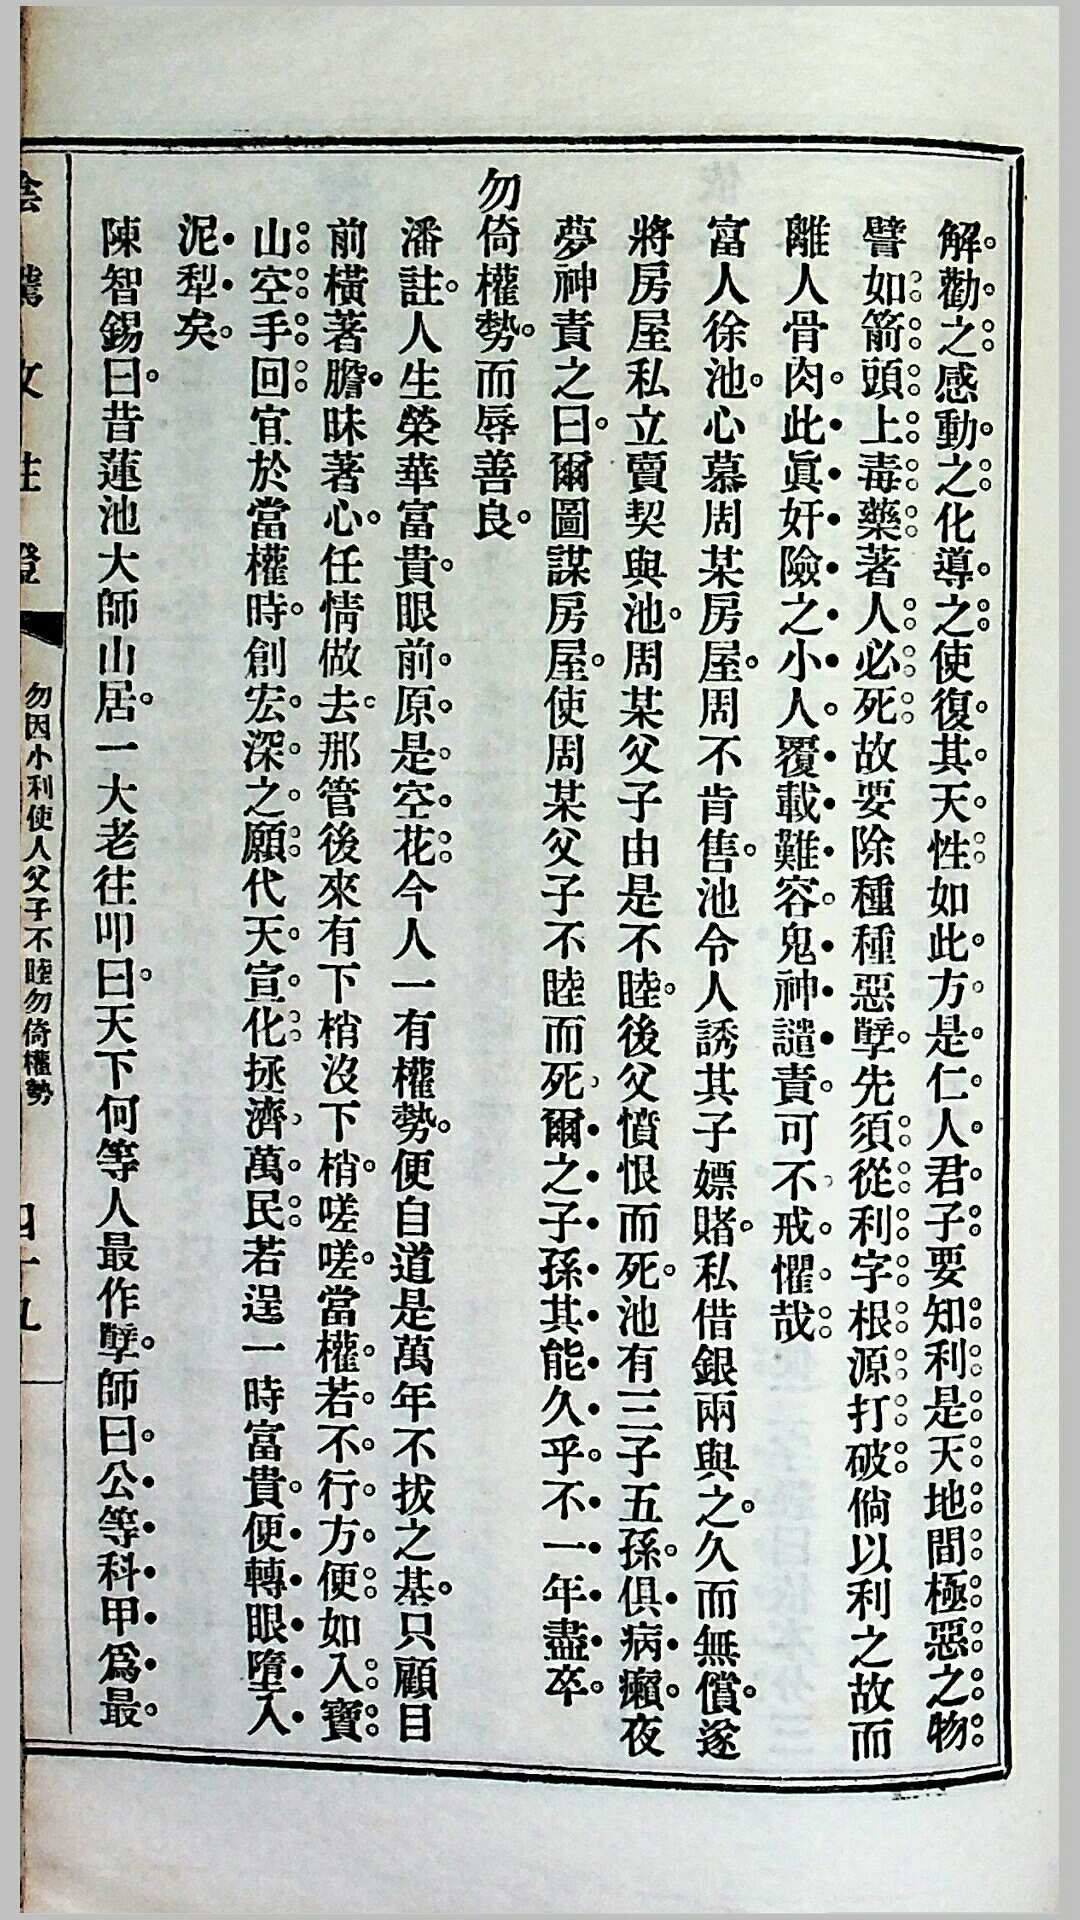 解勸之感動之化導之使復其天性如此方是仁人君子要知利是天地間極惡之物
譬如箭頭上毒藥著人必死故要除種種惡孽先須從利字根源打破倘以利之故而
離人骨肉此眞奸險之小人覆載難容鬼神譴責可不戒懼哉
富人徐池心慕周某房屋周不肯售池令人誘其子嫖賭私借銀兩與之久而無償遂
將房屋私立賣契與池周某父子由是不睦後父憤恨而死池有三子五孫俱病癩夜
夢神責之曰爾圖謀房屋使周某父子不睦而死爾之子孫其能久乎不一年盡卒
勿倚權勢而辱善良
潘註人生榮華富貴眼前原是空花今人一有權勢便自道是萬年不拔之基只顧目
前橫著膽昧著心任情做去那管後來有下梢沒下梢嗟嗟當權若不行方便如入寶
山空手回宜於當權時創宏深之願代天宣化拯濟萬民若逞一時富貴便轉眼墮入
泥犁矣
陳智錫曰昔蓮池大師山居一大老往叩曰天下何等人最作孽師曰公等科甲爲最
陰騭文註證
勿因小利使人父子不睦勿倚權勢
四十九